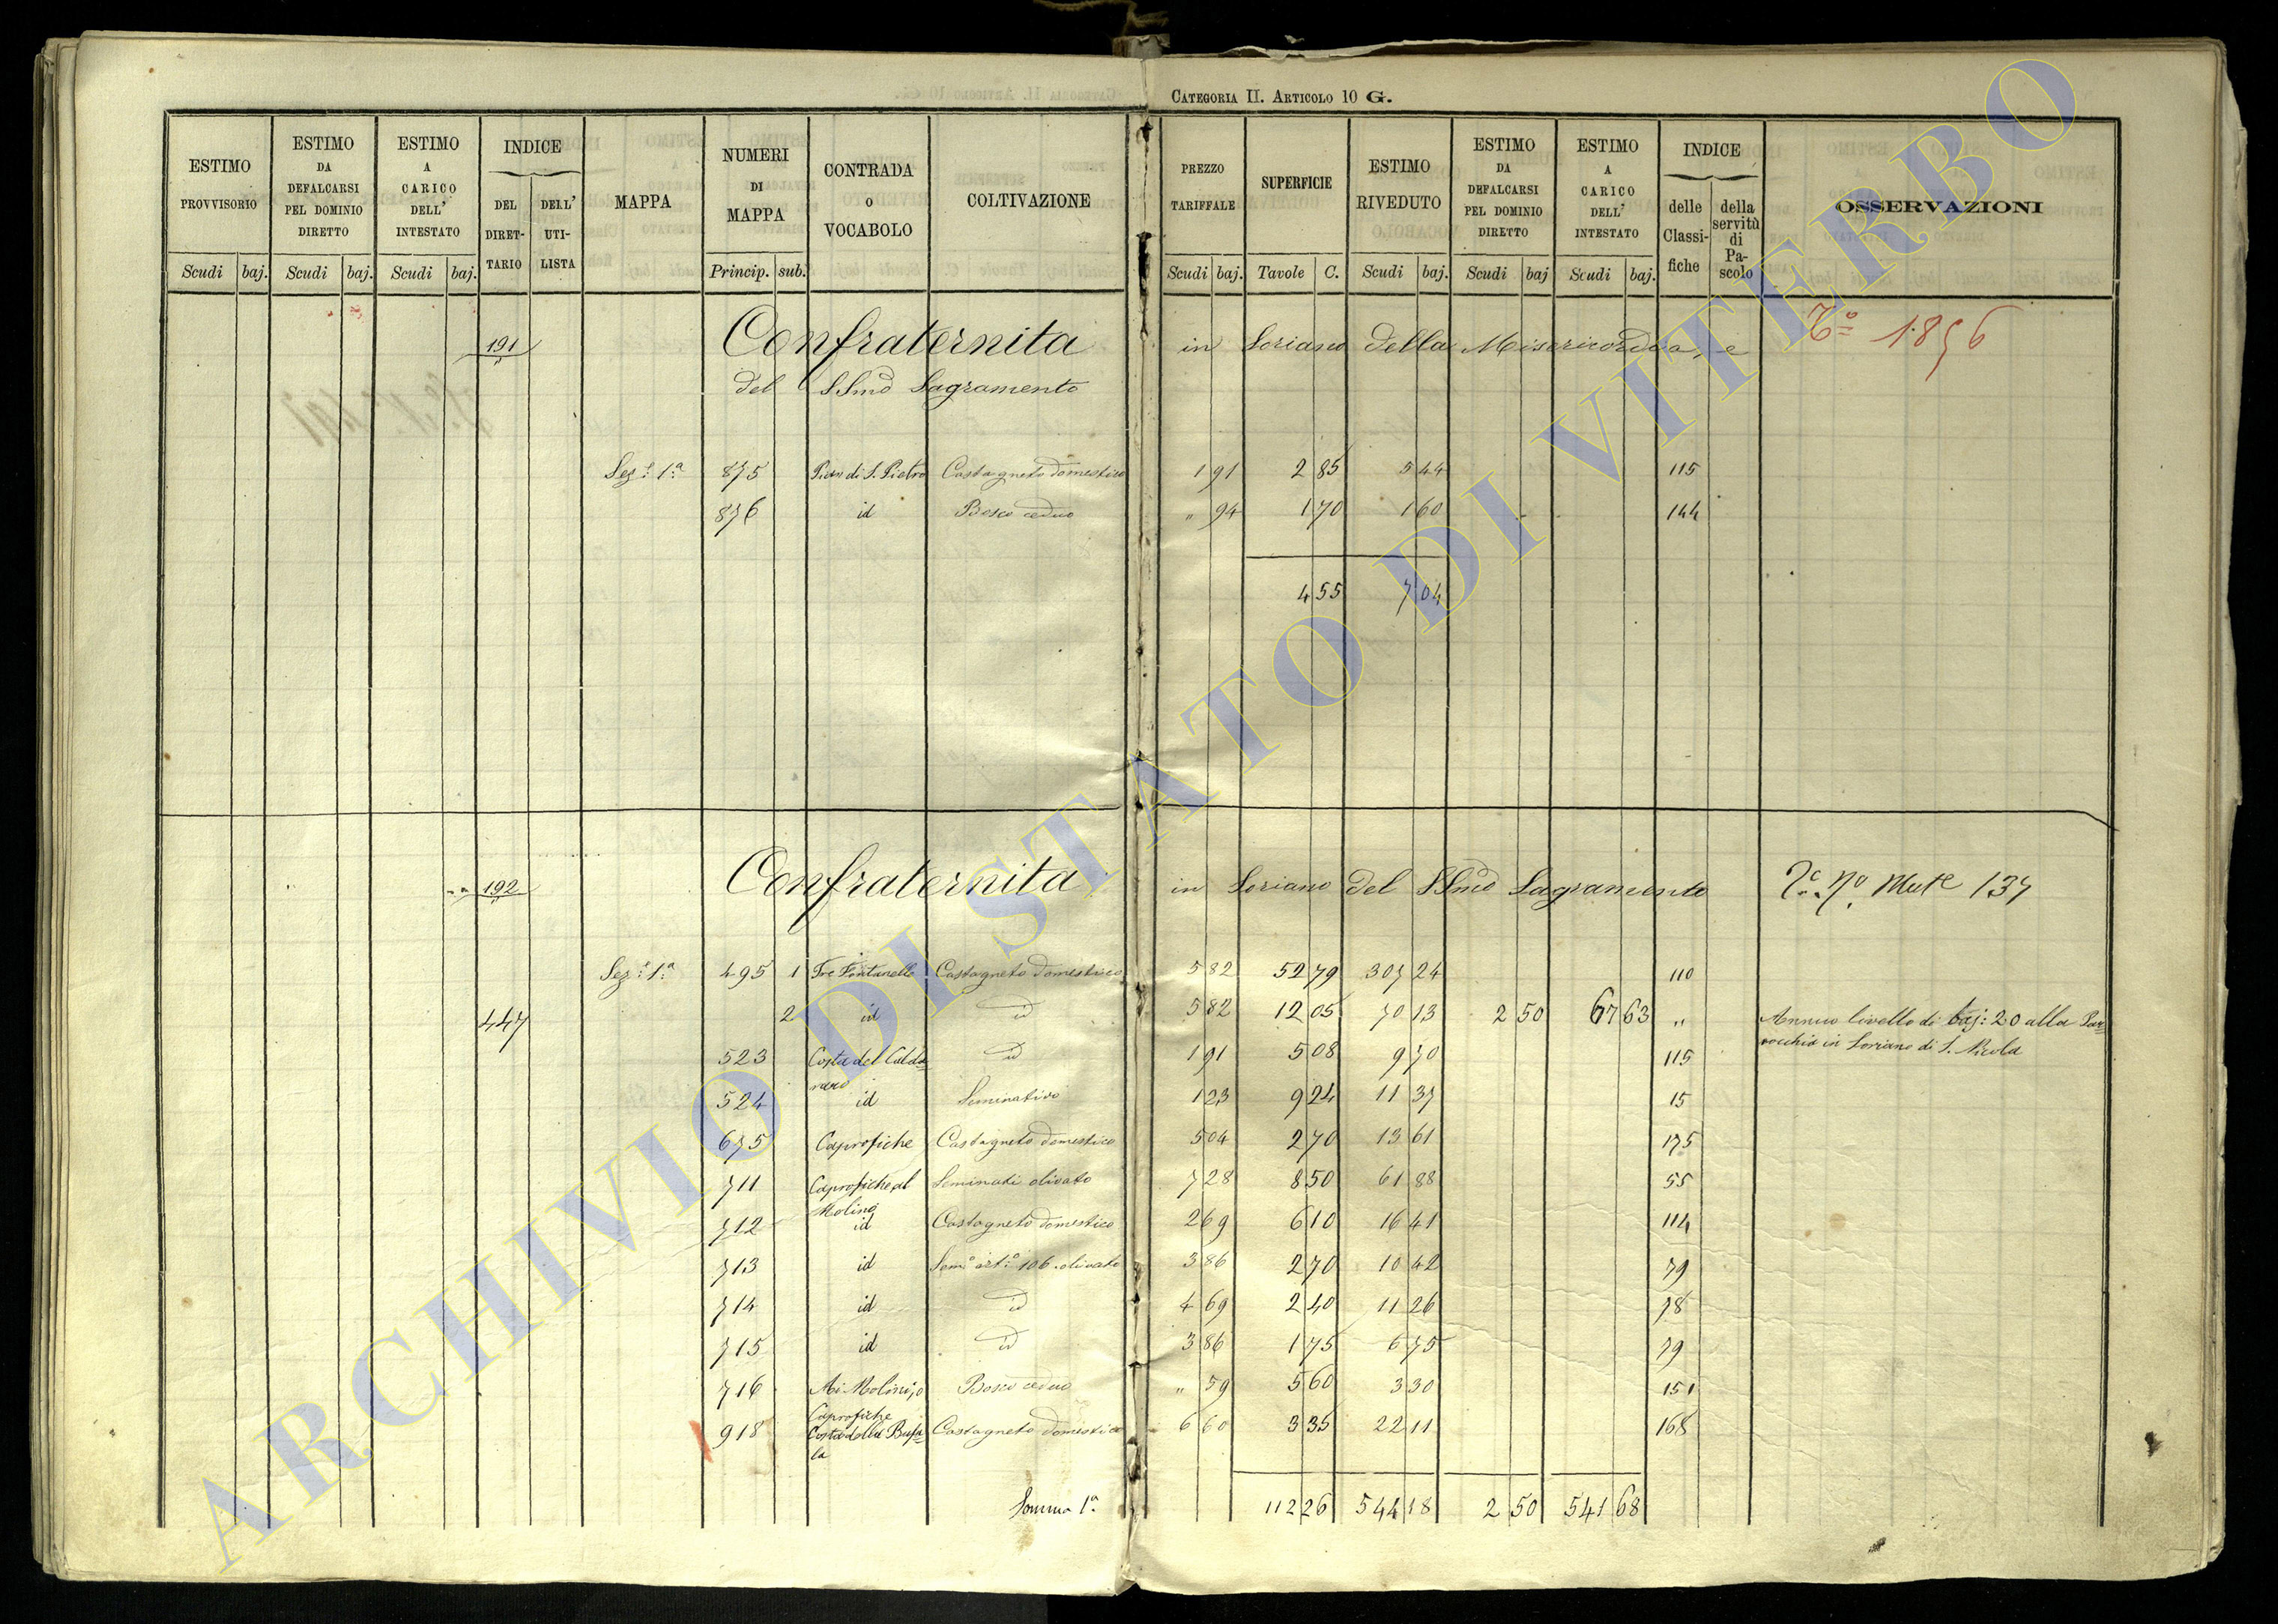 CATEGORIA II. ARTICOLO 10 G.
ESTIMO PROVVISORIO Scudi baj.
ESTIMO DA DEFALCARSI PEL DOMINIO DIRETTO Scudi baj.
ESTIMO A CARICO DELL' INTESTATO Scudi baj.
INDICE DEL DIRETTARIO DELL' UTILISTA
MAPPA
NUMERI DI MAPPA Princip. sub.
CONTRADA O VOCABOLO
COLTIVAZIONE
PREZZO TARIFFALE Scudi baj.
SUPERFICIE Tavole C.
ESTIMO RIVEDUTO Scudi baj.
ESTIMO DA DEFALCARSI PEL DOMINIO DIRETTO Scudi baj
ESTIMO A CARICO DELL' INTESTATO Scudi baj.
INDICE delle Classifiche della servitù di Pascolo
OSSERVAZIONI
191 Confraternita in Soriano della Misericordia, e 1856
del SSmo Sagramento
Sez.e 1.a 875 Pian di S. Pietro Castagneto domestico 1 91 2 85 5 44 115
876 id Bosco ceduo " 94 1 70 1 60 144
4 55 7 04
192 Confraternita in Soriano del SSmo Sagramento Mute 137
Sez.e 1.a 495 1 Tre Fontanelle Castagneto domestico 5 82 52 79 307 24 110
447 2 id id 5 82 12 05 70 13 2 50 67 63 " Annuo livello di baj: 20 alla Par=
rocchia in Soriano di S. Nicola
523 Costa del Calda= id 1 91 5 08 9 70 115
raro
524 id Seminativo 1 23 9 24 11 37 15
675 Caprofiche Castagneto domestico 5 04 2 70 13 61 175
711 Caprofiche al Seminati olivato 7 28 8 50 61 88 55
Molino
712 id Castagneto domestico 2 69 6 10 16 41 114
713 id Sem.o art.o 106 olivato 3 86 2 70 10 42 79
714 id id 4 69 2 40 11 26 78
715 id id 3 86 1 75 6 75 79
716 Ai Molini, o Bosco ceduo " 59 5 60 3 30 151
Caprofiche
918 Costa della Bufa= Castagneto domestico 6 60 3 35 22 11 168
la
Somma 1.a 112 26 544 18 2 50 541 68
ARCHIVIO DI STATO DI VITERBO